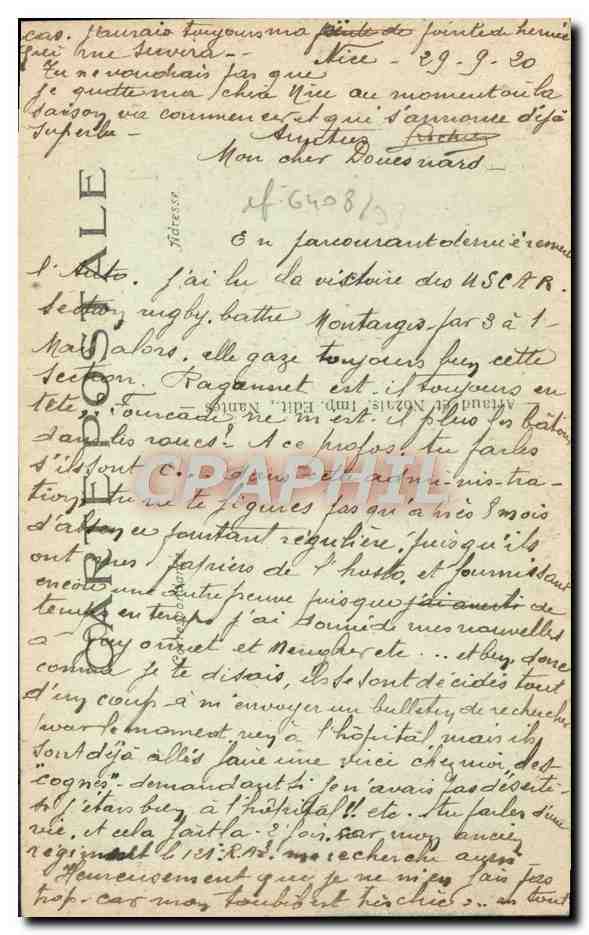 cas. j'aurais toujours ma pointe de hernie
qui me servira --
Nice - 29-9-20
Tu ne voudrais pas que
je quitte ma chère Nice au moment où la
saison va commencer et qui s'annonce déjà
superbe -
Amitiés
Mon cher Douesnard -
CARTE POSTALE
Adresse
Correspondance
ef 6408/
En parcourant dernièrement
l'Auto. j'ai lu la victoire des USCAR.
section rugby. battre Montargis par 3 à 1 -
Mais alors. elle gaze toujours bien cette
section. Ragonnet est-il toujours en
Artaud et Nozais, Imp. Edit., Nantes
tête, Fourcade ne m'est-il plus les bâtons
dans les roues? - A ce propos. tu parles
CPRAPHIL
s'ils sont c... dans cette administra-
tion, tu ne te figures pas qu'après 8 mois
d'absence pourtant régulière, puisqu'ils
ont mes papiers de l'hosto, et fournissant
encore une autre preuve puisque j'ai averti de
temps en temps j'ai donné de mes nouvelles
à et etc... et bien donc
comme je te disais, ils se sont décidés tout
d'un coup à m'envoyer un bulletin de recherches
pour le moment rien à l'hôpital mais ils
sont déjà allés faire une virée chez moi, des
"cognes" - demandant si je n'avais pas déserté -
si j'étais bien à l'hôpital!! etc. tu parles d'une
vie. Et cela fait la 2e fois. car mon ancien
régiment le 121e R.A.L. me recherche aussi
Heureusement que je ne m'en fais pas
trop. car mon toubib est très chic... en tout